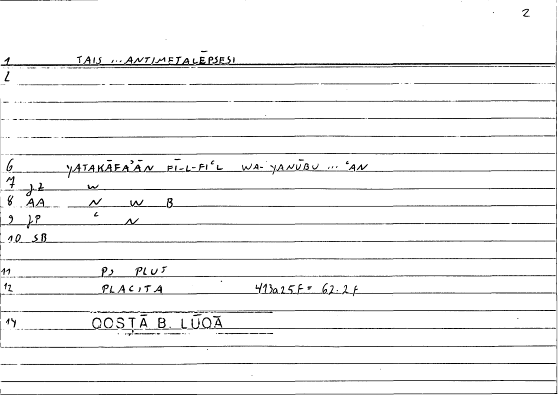 2
1 TAIS ... ANTIMETALĒPSESI
2
6 YATAKĀFAʾĀN FĪ-L-FIʿL WA-YANŪBU ... ʿAN
7 JZ W
8 AA N W B
9 JP ʿ N
10 SB
11 PJ PLUT
12 PLACITA 413a25F = 62.2F
14 QOSṬĀ B. LŪQĀ